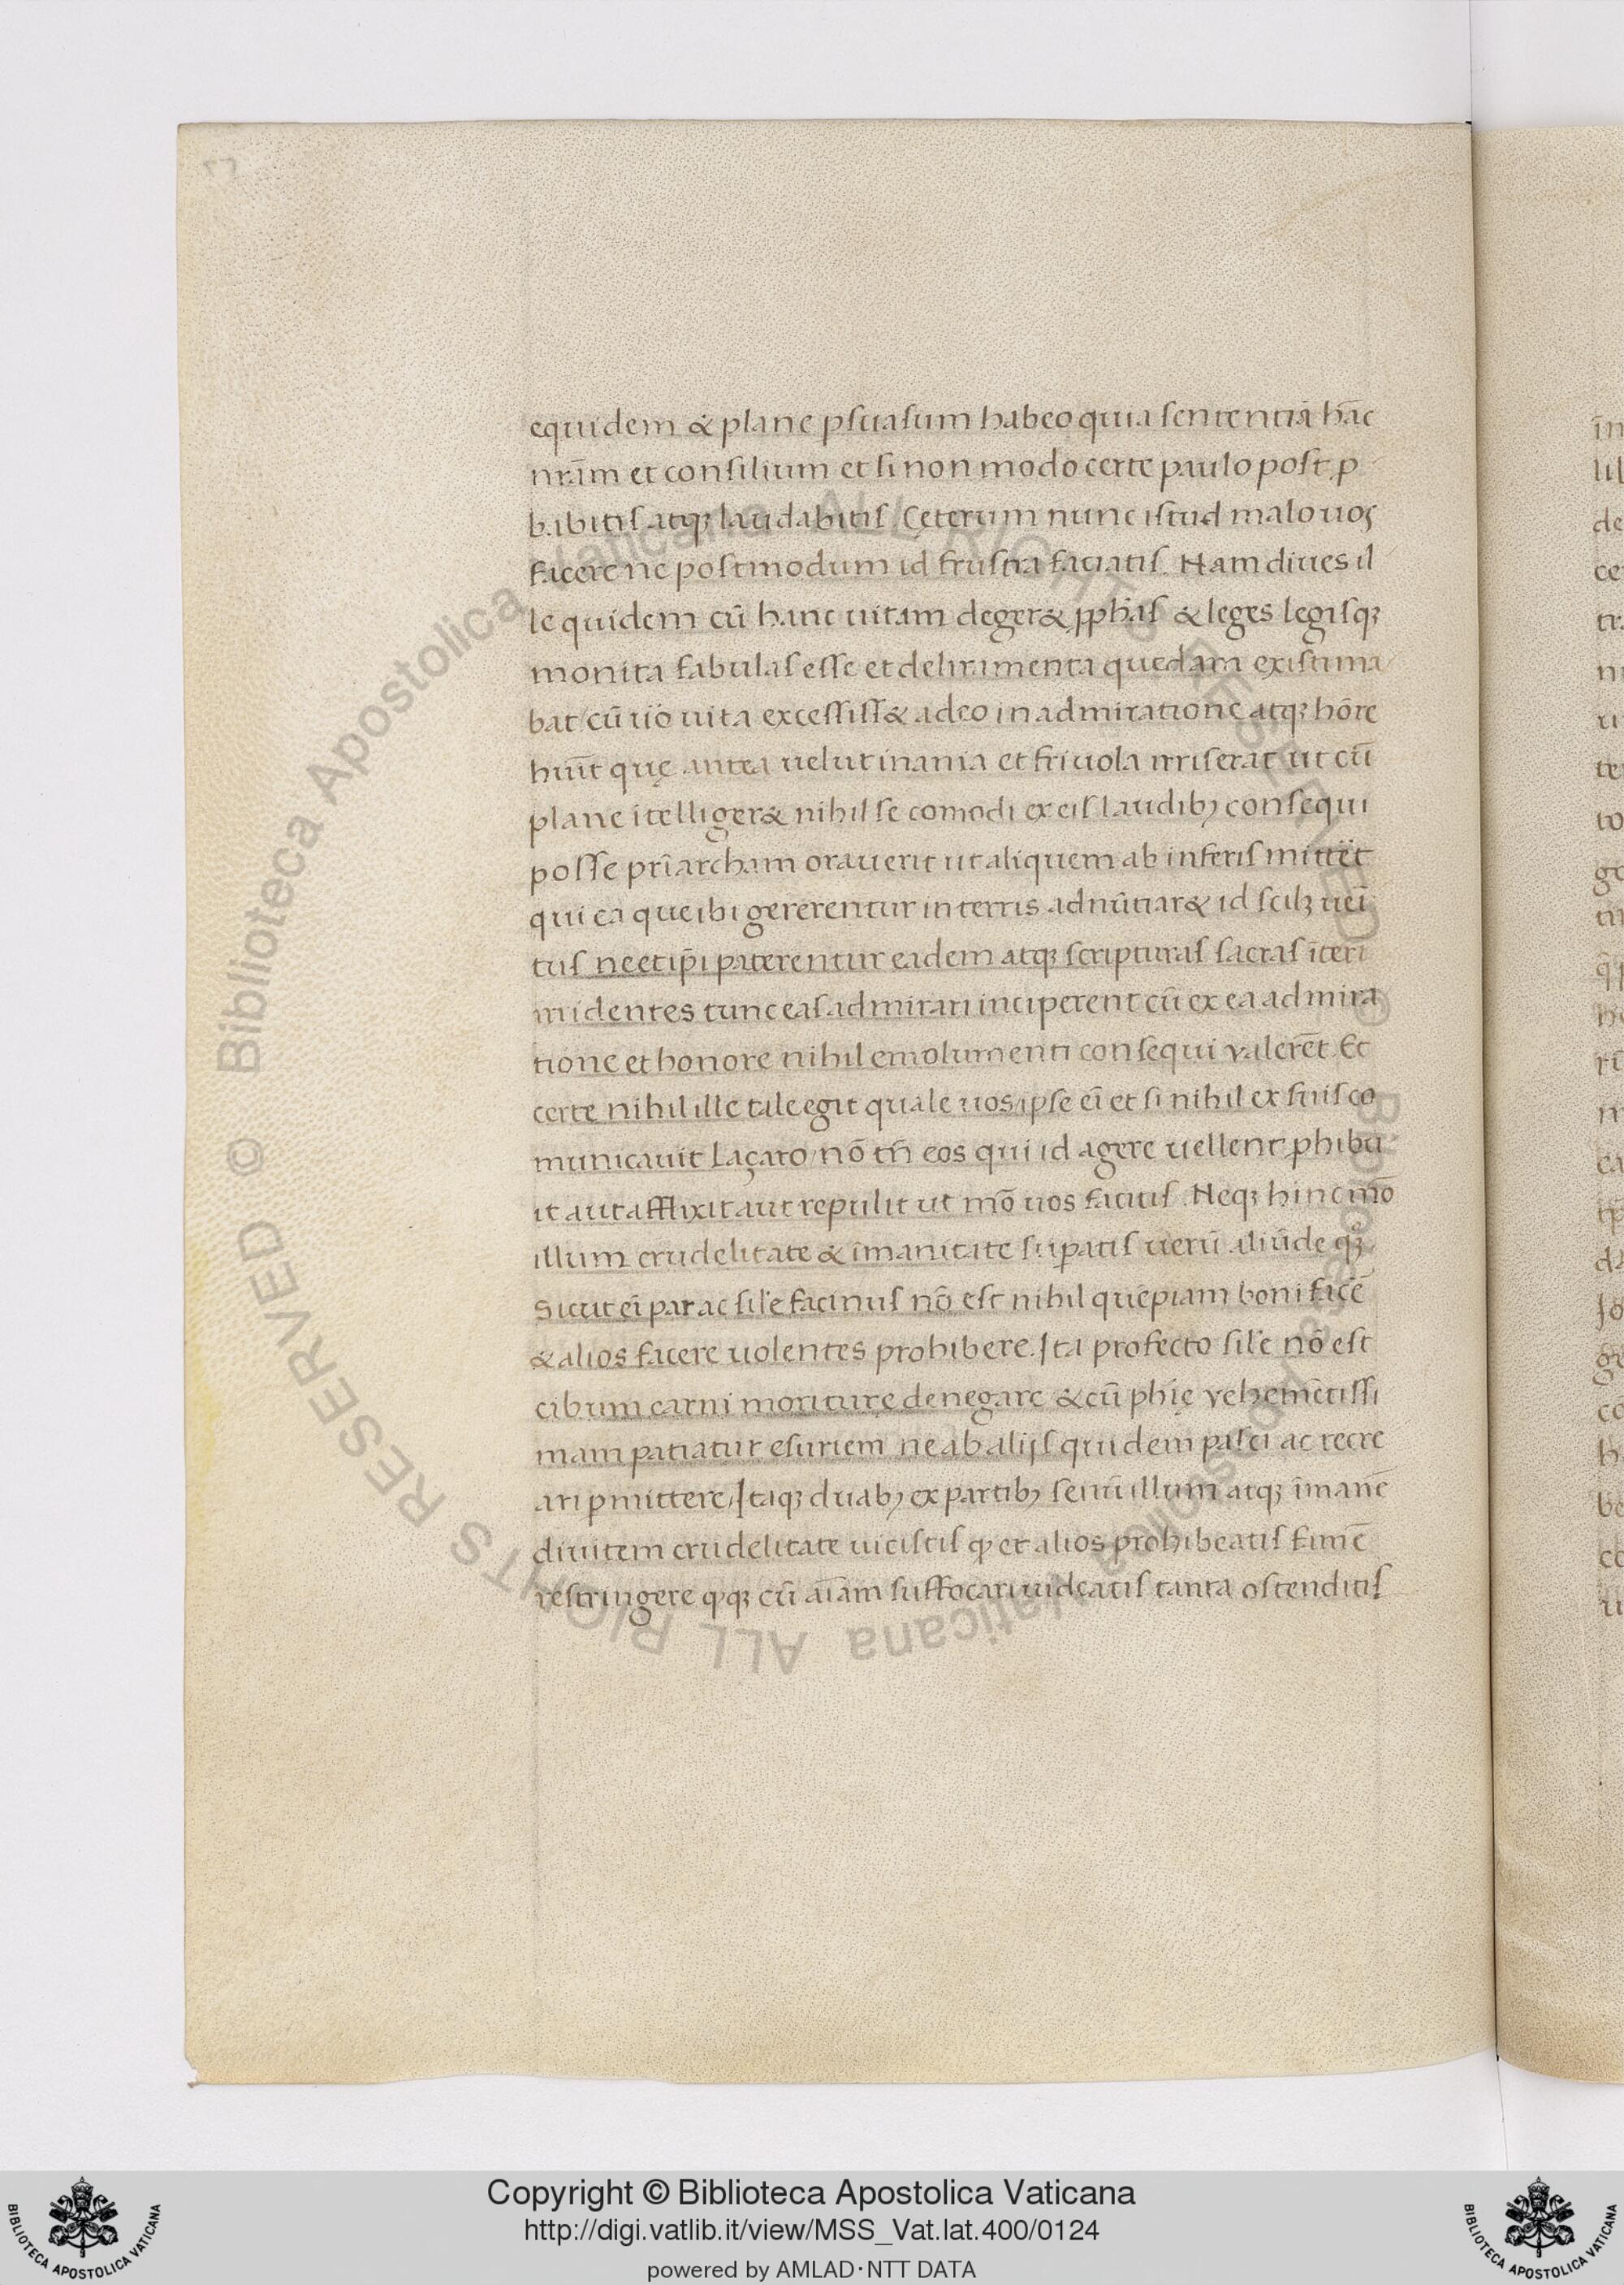 equidem & plane ꝑsuasum habeo quia sententiā hāc
nr̄am et consilium et si non modo certe paulo post ꝓ
babitis atqꝫ laudabitis. Ceterum nunc istud malo uos
facere ne postmodum id frustra faciatis. Nam diues il
le quidem cū hanc uitam deger& ꝓph̄as & leges legisqꝫ
monita fabulas esse et deliramenta quedam existima
bat/cū ūo uita excessiss& adeo in admiratione atqꝫ hōre
huīt quę antea uelut inania et friuola irriserat ut cū
plane ītelliger& nihil se comodi ex eis laudibꝫ consequi
posse prīarcham orauerit ut aliquem ab inferis mittēt
qui ea que ibi gererentur in terris adnūtiar& id scilꝫ ueī
tus ne et ip̄i paterentur eadem atqꝫ scripturas sacras īteri
rridentes tunc eas admirari inciperent cū ex ea admira
tione et honore nihil emolumenti consequi valerēt. Et
certe nihil ille tale egit quale uos ipse eī et si nihil ex suis co
municauit Laçaro/nō tn̄ eos qui id agere uellent ꝓhibu
it aut afflixit aut repulit ut mō uos facitis. Neqꝫ hinc mō
illum crudelitate & īmanitate suꝑatis uerū aliūde qꝫ
Sicut eī par ac sil'e facinus nō est nihil quēpiam boni facē
& alios facere uolentes prohibere. Ita profecto sil'e nō est
cibum carni moriture denegare & cū ph̄ię vehemētissi
mam patiatur esuriem ne ab alijs quidem pasci ac recre
ari ꝑmittere/Itaqꝫ duabꝫ ex partibꝫ seuū illum atqꝫ īmanē
diuitem crudelitate uicistis ꝙ et alios prohibeatis famē
restringere ꝙqꝫ cū aīam suffocari uideatis tanta ostenditis
Copyright © Biblioteca Apostolica Vaticana
http://digi.vatlib.it/view/MSS_Vat.lat.400/0124
powered by AMLAD·NTT DATA